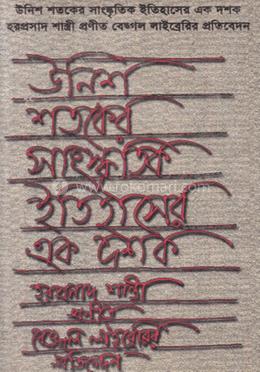 উনিশ শতকের সাংস্কৃতিক ইতিহাসের এক দশক
হরপ্রসাদ শাস্ত্রী প্রণীত বেঙ্গল লাইব্রেরির প্রতিবেদন
উনিশ
শতকের
সাংস্কৃতিক
ইতিহাসের
এক দশক
হরপ্রসাদ শাস্ত্রী
প্রণীত
বেঙ্গল লাইব্রেরির
প্রতিবেদন
rokomari.com